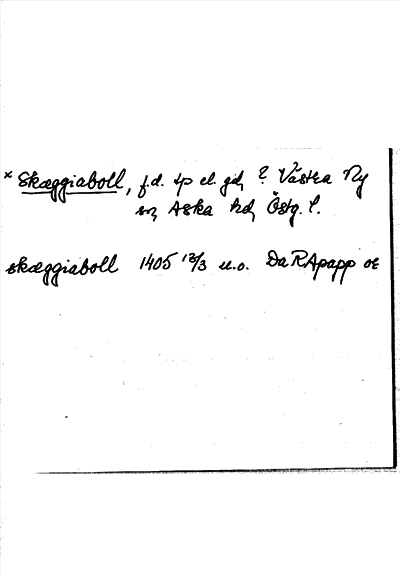 * Skæggiaboll, f.d. tp el. gd, ? Västra Ny
sn, Aska hd, Östg. l.
skæggiaboll 1405 12/3 u.o. Da RApapp or